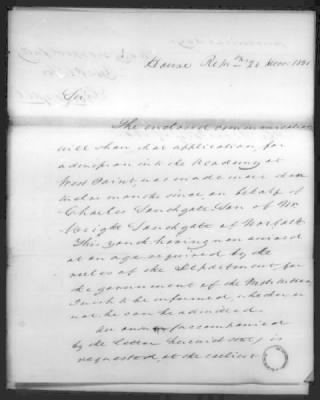 House Reps. 20 
Sir,
The enclosed communication
will show that application, for
admission into the Academy at
West Point, was made more than
twelve months since, on behalf of
Charles Southgate, Son of Mr.
Wright Southgate of Norfolk.
This youth having now arrived
at an age required by the
rules of the Department, for
the government of the
I wish to be informed, whether or
not he can be admitted.
An answer, (accompanied
by the letter herewith sent,) is
requested, at the earliest